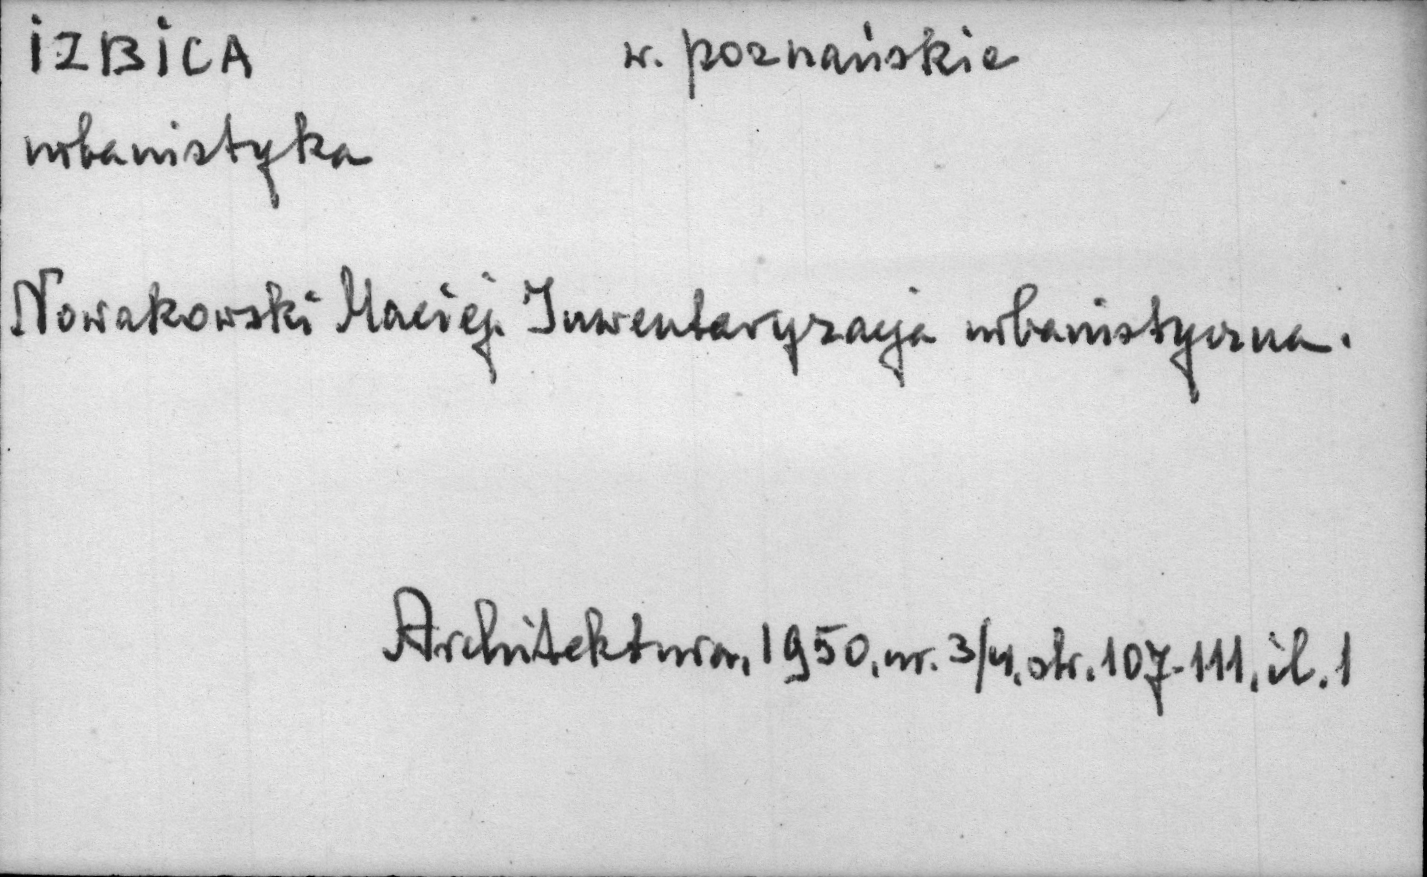 IZBICA w. poznańskie
urbanistyka
Nowakowski Maciej. Inwentaryzacja urbanistyczna.
Architektura, 1950, nr. 3/4, str. 107-111, il. 1